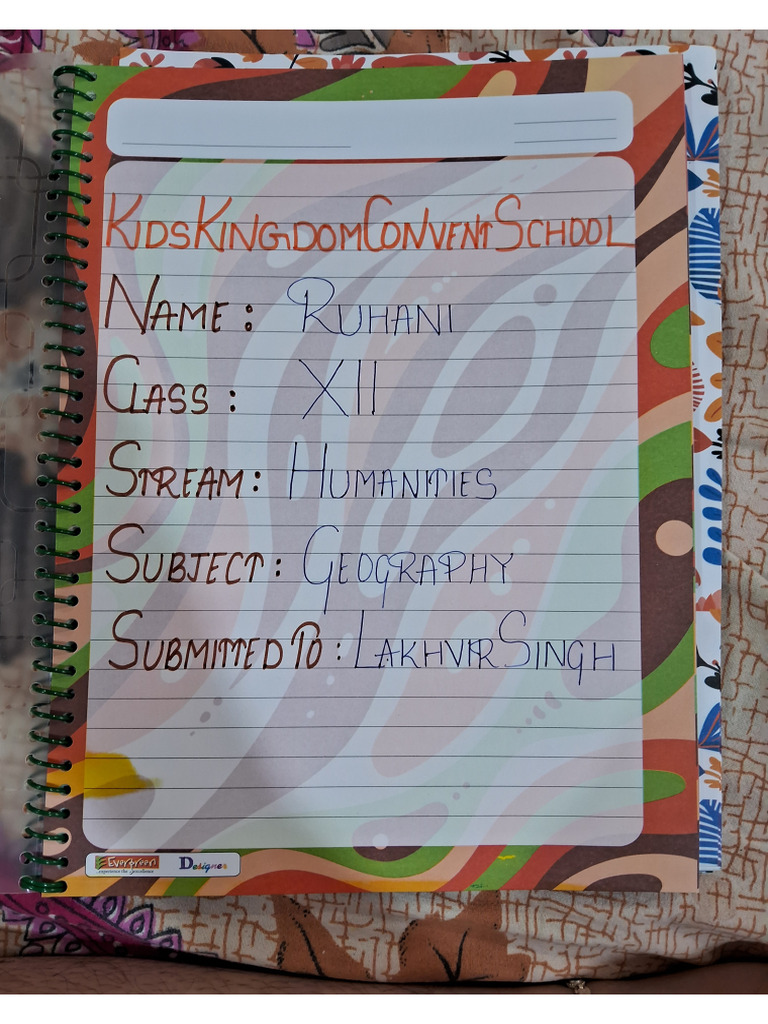 KIDS KINGDOM CONVENT SCHOOL
NAME: RUHANI
CLASS: XII
STREAM: HUMANITIES
SUBJECT: GEOGRAPHY
SUBMITTED TO: LAKHVIR SINGH
Evergreen Designer
experience the xcellence